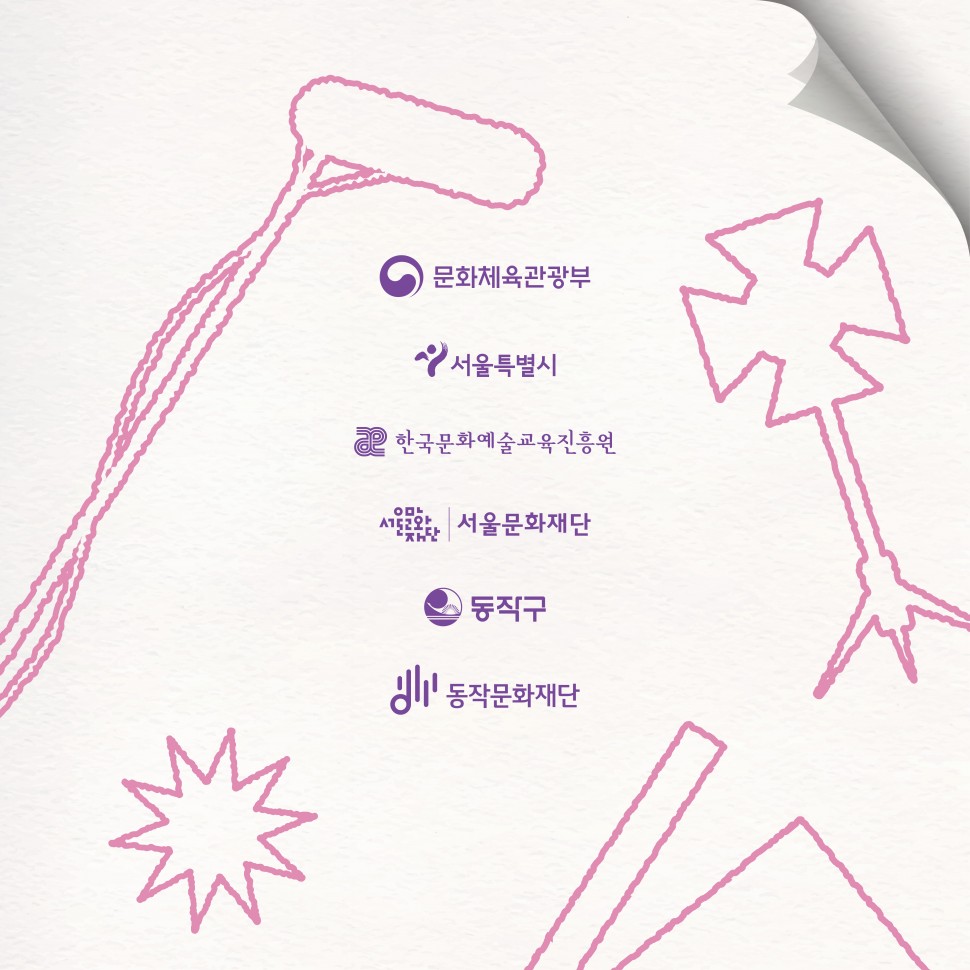 문화체육관광부
서울특별시
한국문화예술교육진흥원
서울문화재단
동작구
동작문화재단